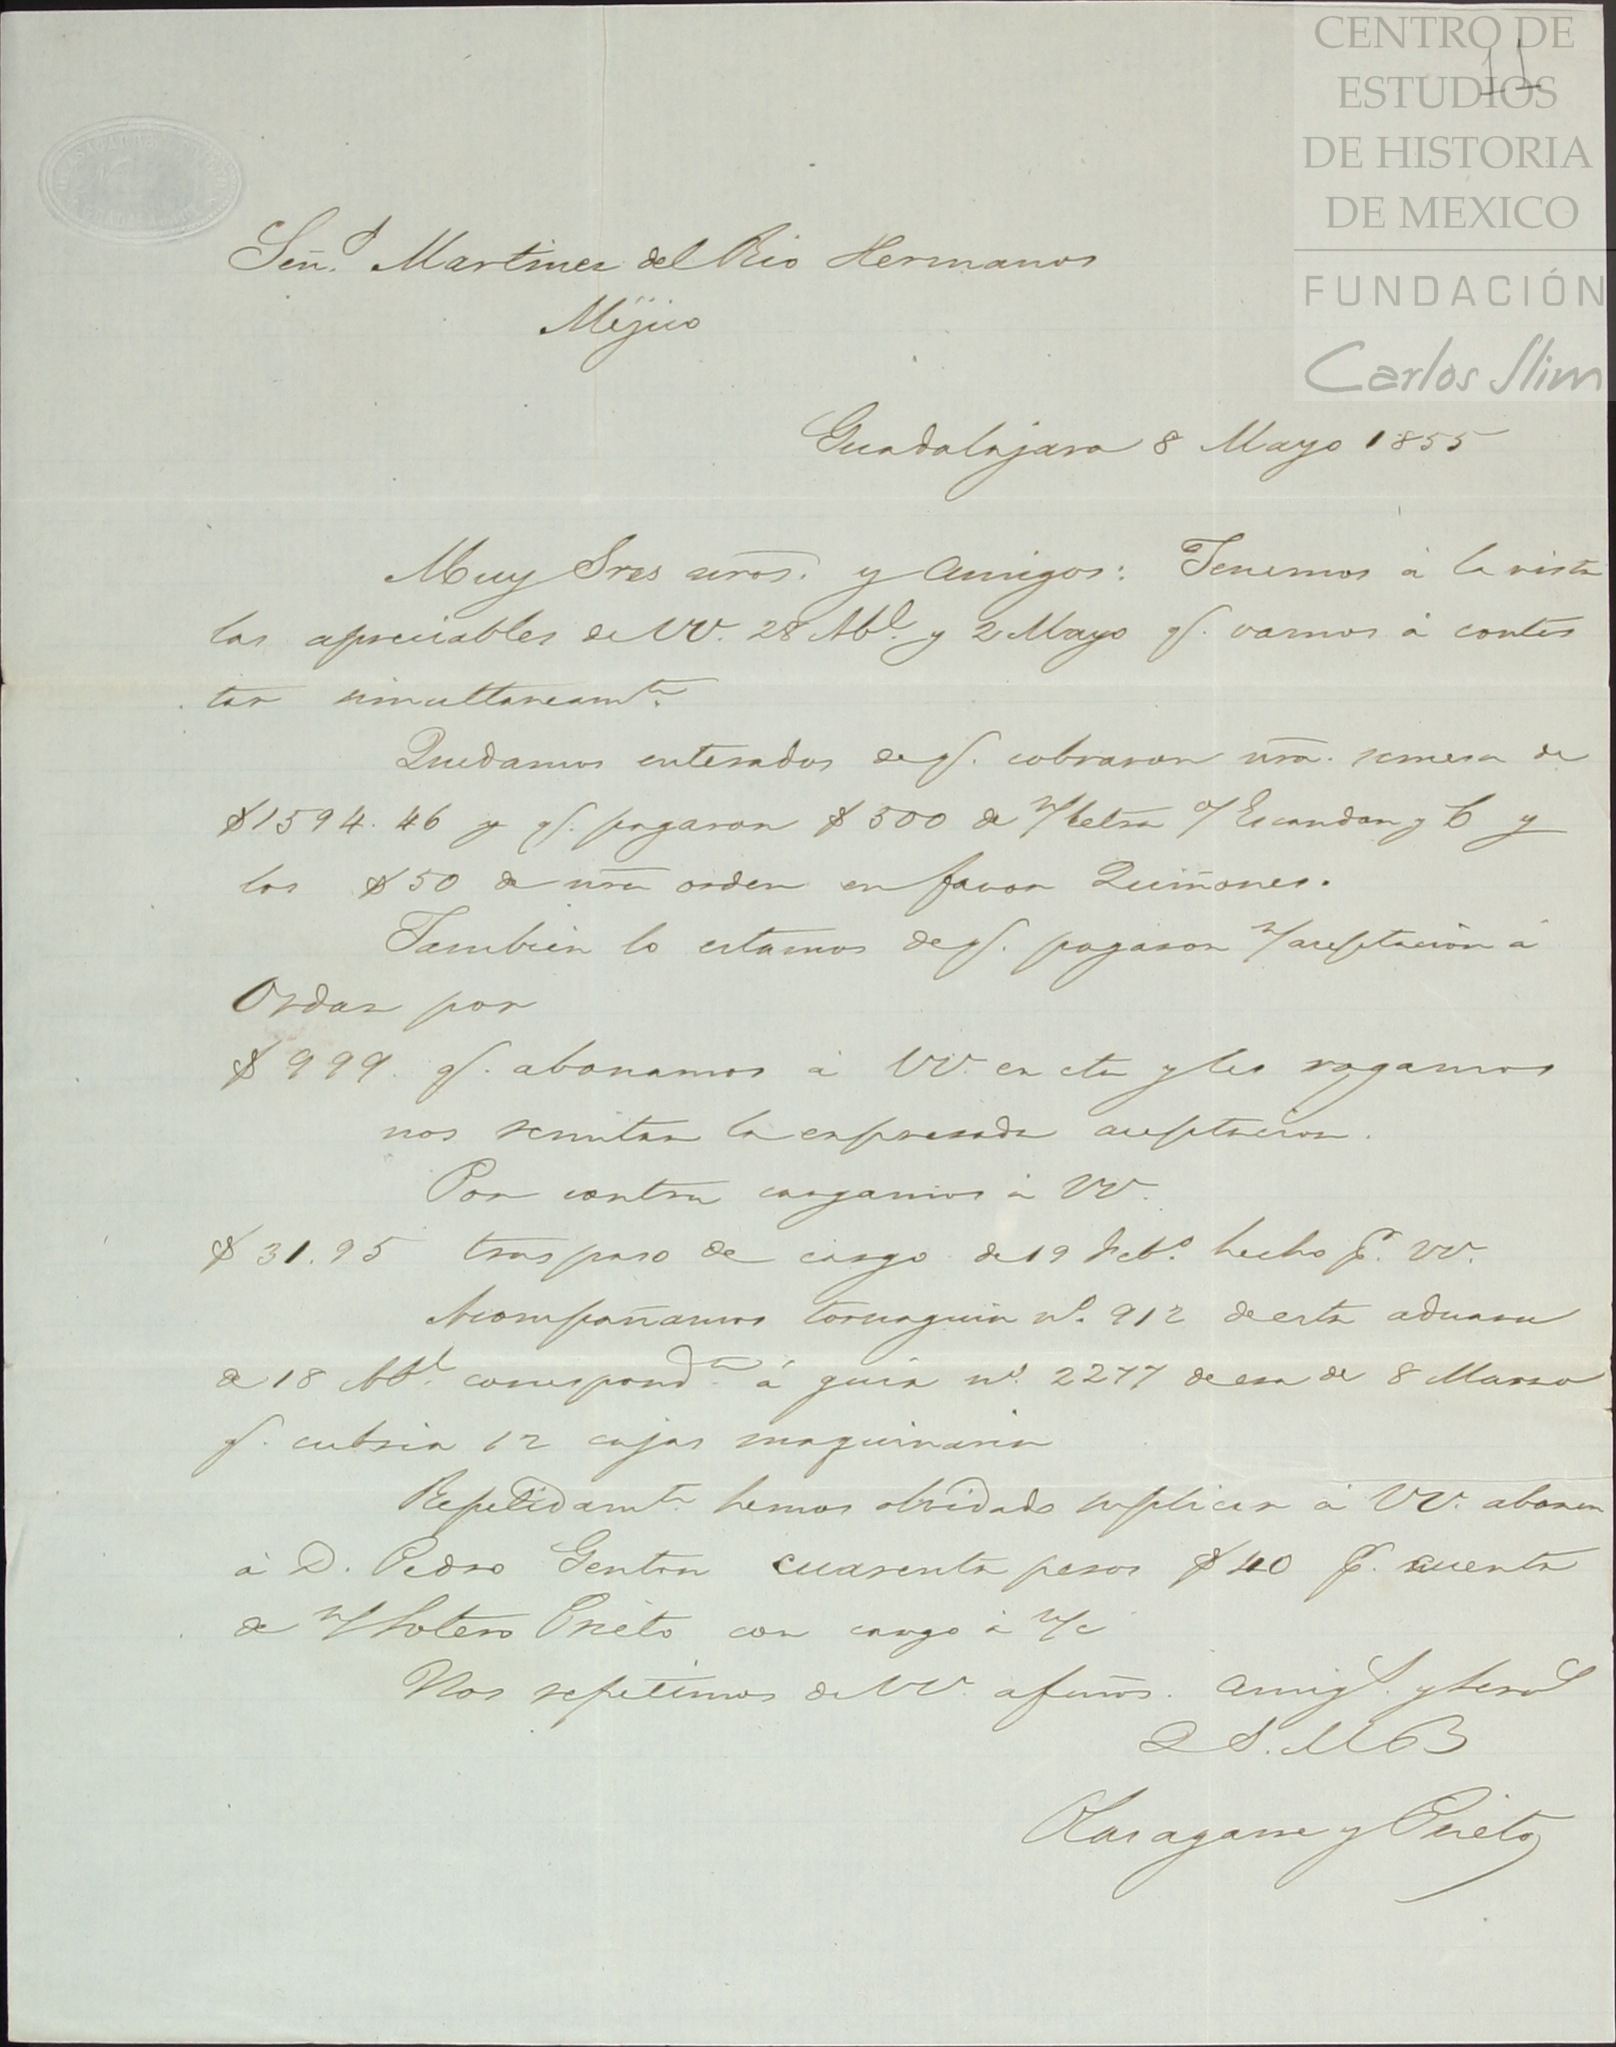 CENTRO DE
ESTUDIOS
DE HISTORIA
DE MEXICO
FUNDACIÓN
Carlos Slim
11
Señ.s Martinez del Rio Hermanos
Méjico
Guadalajara 8 Mayo 1855
Muy Sres nros. y amigos: Tenemos á la vista
las apreciables de VV. 28 Abl. y 2 Mayo q. vamos á contes
tar simultaneamte.
Quedamos enterados de q. cobraron nra. remesa de
$1594.46 y q. pagaron $500 de n/ letra o/ Escandon y C y
los $50 de nra orden en favor Quiñones.
Tambien lo estamos de q. pagaron n/ aceptacion á
Ordaz por
$999. q. abonamos á VV. en cta y les rogamos
nos remitan la expresada aceptacion.
Por contra cargamos á VV.
$31.95 traspaso de cargo de 19 Feb.o hecho p.r VV.
Acompañamos tornaguia n.o 912 de esta aduana
de 18 Abl. correspondte á guia n.o 2277 de esa de 8 Marzo
q. cubria 12 cajas maquinaria
Repetidamte hemos olvidado suplicar á VV. abonen
á D. Pedro cuarenta pesos $40 p.r cuenta
de n/ Sotero Prieto con cargo á n/c
Nos repetimos de VV. afmos. amig.s y servs
Q S. M B
Olasagarre y Prieto